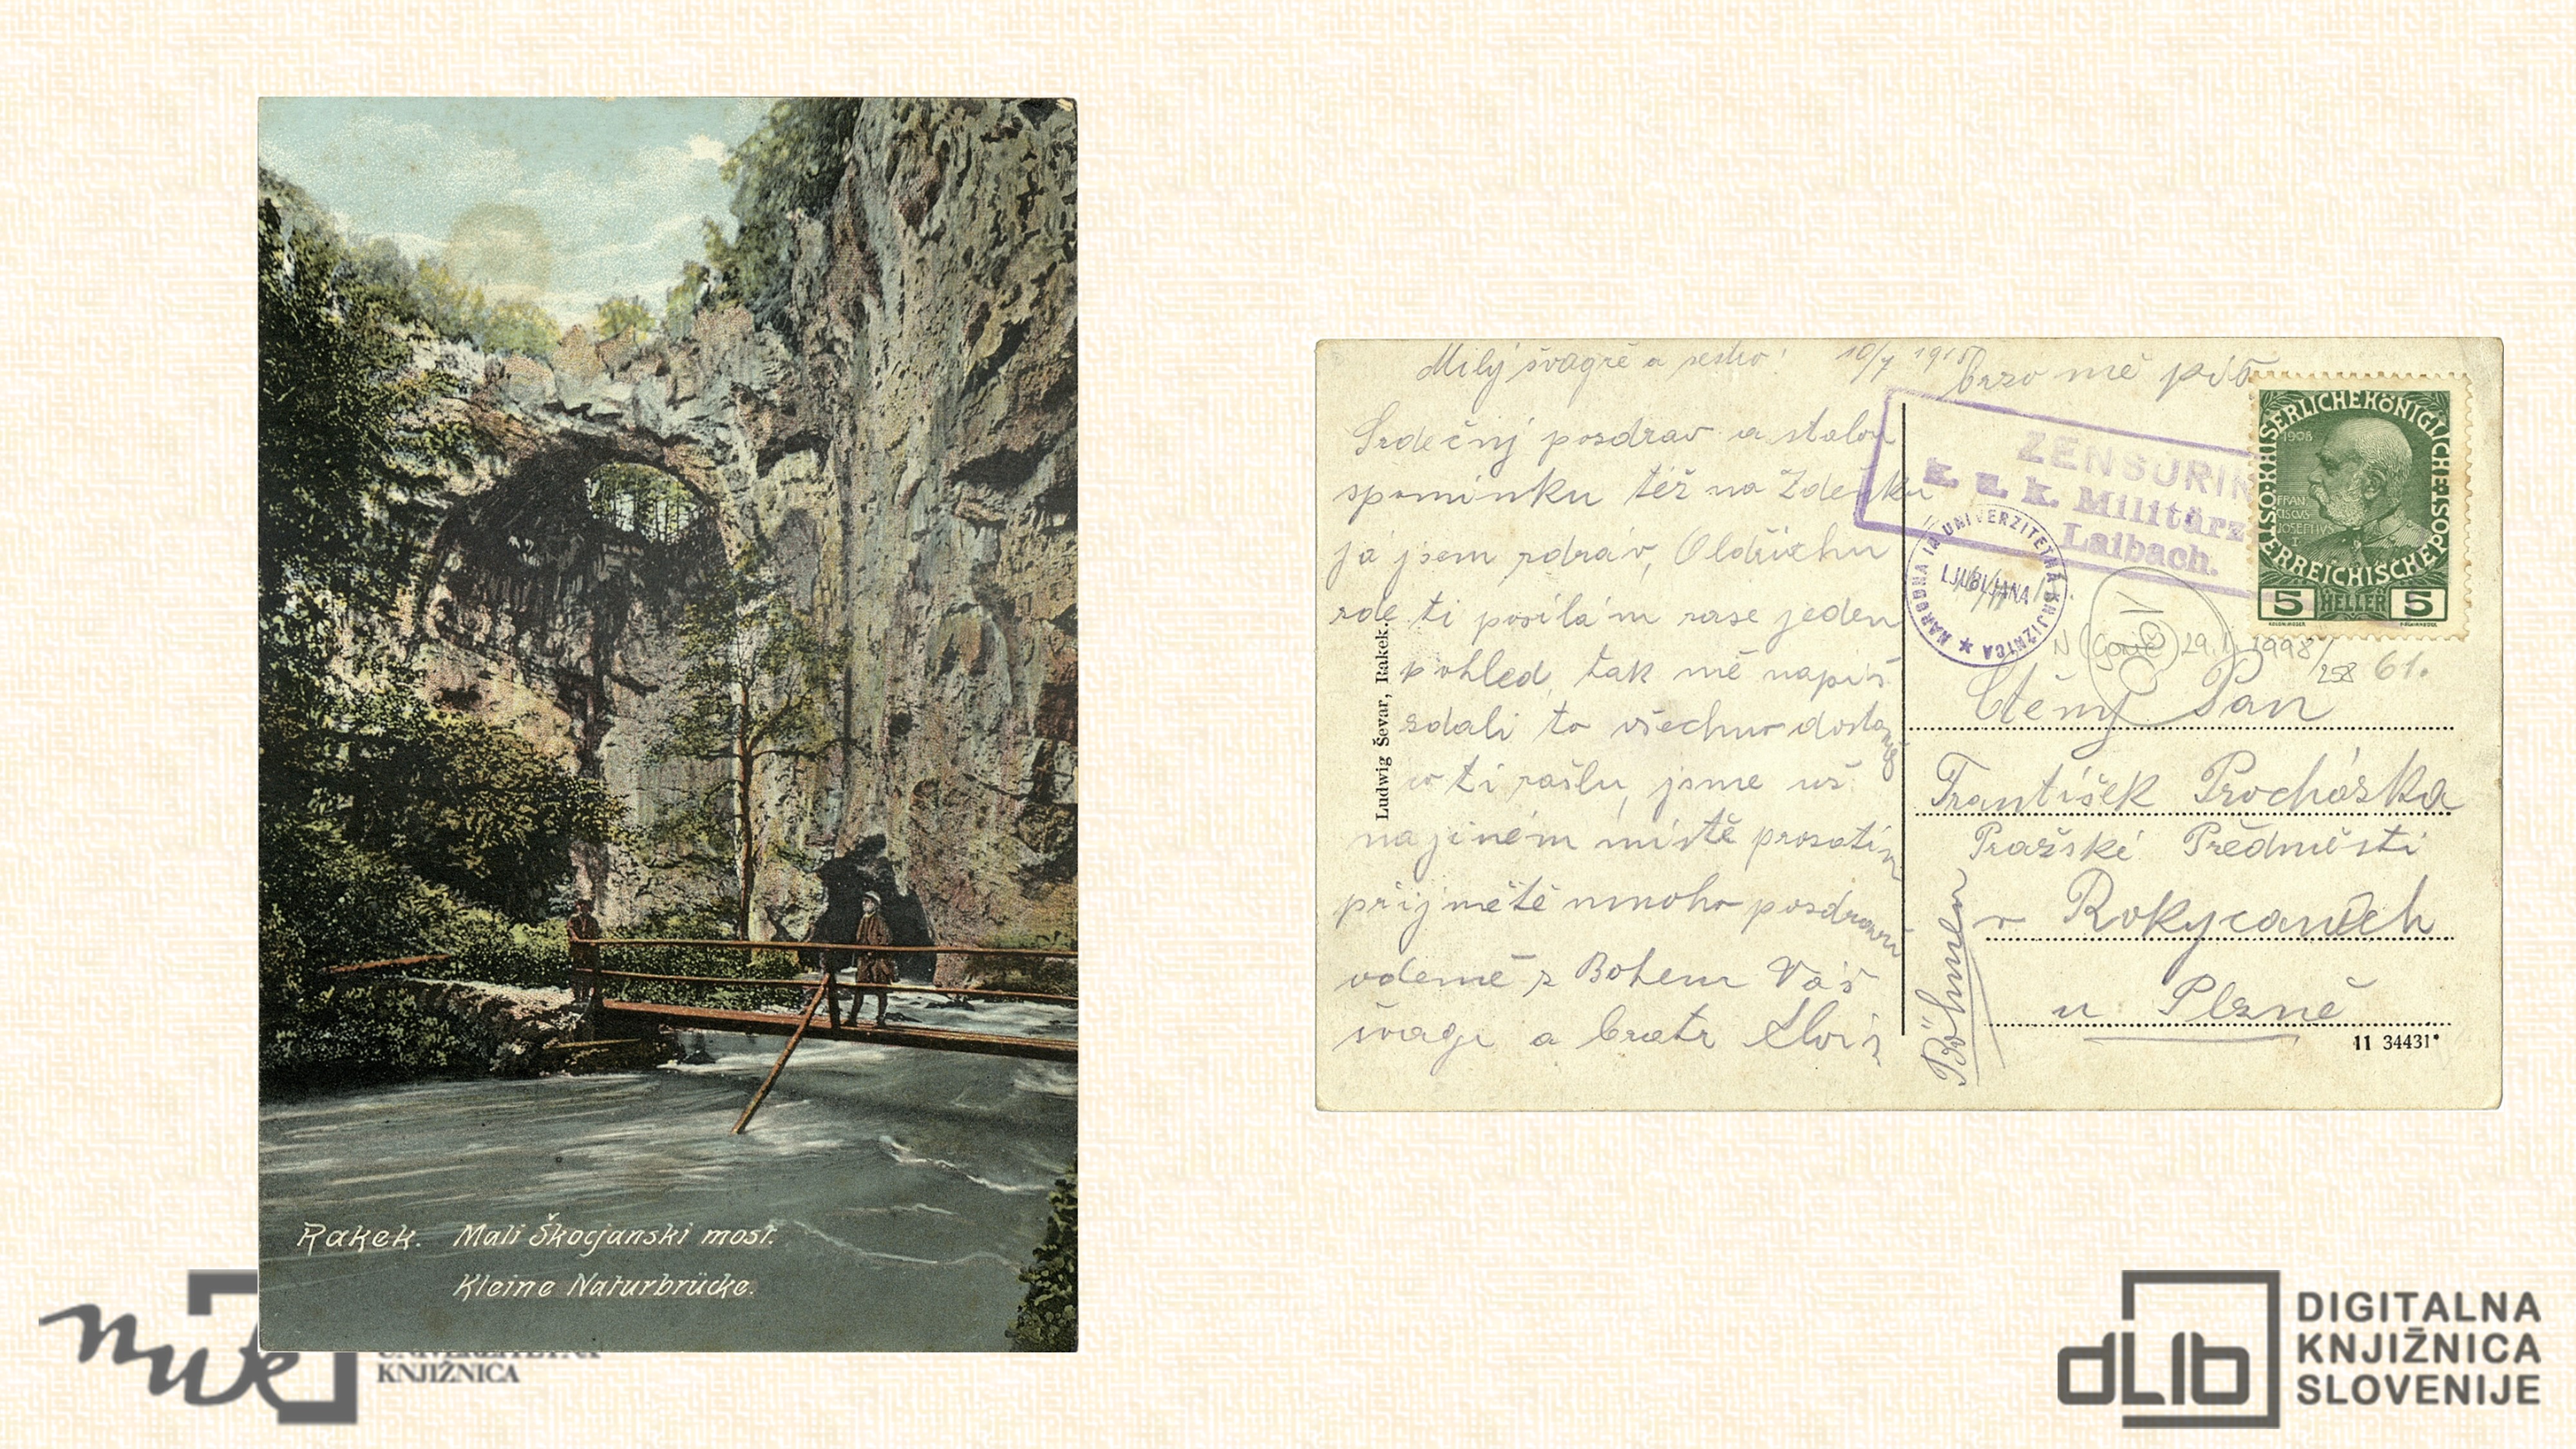 Rakek. Mali Škocjanski most.
Kleine Naturbrücke.
KNJIŽNICA
Milý švagře a sestro! 10/7 1915
brzo mě piš
Srdečný pozdrav a stalou
spominku též na Zdeňku
já jsem zdráv, Oldřichu
zde ti posílám zase jeden
pohled, tak mě napiš
zdali to všechno dostaneš
co ti zašlu, jsme už
na jiném místě prozatím
přijmětě mnoho pozdravů
odemě z Bohem Váš
švagr a bratr Alois
Ludwig Ševar, Rakek.
ZENSURI
k. u. k. Militärz
Laibach.
NARODNA IN UNIVERZITETNA KNJIŽNICA
LJUBLJANA
KAISERLICHEKÖNIGLICHE
ÖSTERREICHISCHEPOST
1908
FRAN
CISCVS
JOSEPHVS
I
5 HELLER 5
29.1.1998/258 61.
Ctěný Pan
František Procházka
Pražské Předměsti
v Rokycanech
u Plzně
Böhmen
11 34431*
dLib
DIGITALNA
KNJIŽNICA
SLOVENIJE